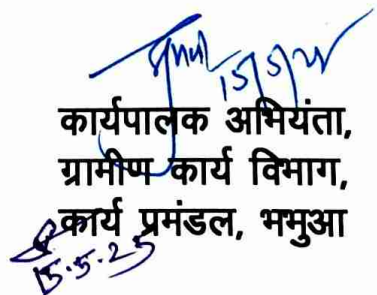 15/5/25
कार्यपालक अभियंता,
ग्रामीण कार्य विभाग,
कार्य प्रमंडल, भभुआ
15.5.25